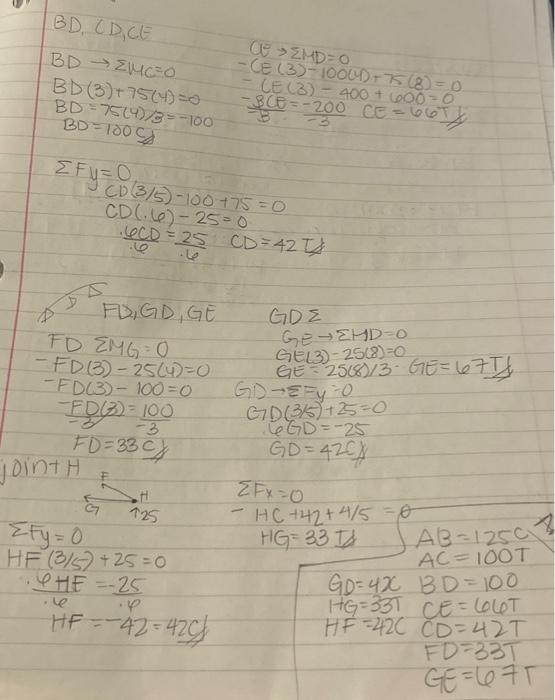 BD, CD, CE
BD → ΣMC=0
BD(3)+75(4)=0
BD=75(4)/3=-100
BD=100C
CE → ΣMD=0
-CE(3)-100(4)+75(8)=0
-CE(3)-400+600=0
-3CE=-200 CE=66T
-3 -3
ΣFy=0
CD(3/5)-100+75=0
CD(.6)-25=0
.6CD=25 CD=42T
.6 .6
FD, GD, GE
FD ΣMG=0
-FD(3)-25(4)=0
-FD(3)-100=0
-FD(3)=100
-3 -3
FD=33C
GD Σ
GE → ΣMD=0
GE(3)-25(8)=0
GE=25(8)/3 GE=67T
GD → ΣFy=0
GD(3/5)+25=0
.6GD=-25
GD=42C
joint H
F
G H
↑25
ΣFy=0
HF(3/5)+25=0
.6HF=-25
.6 .6
HF=-42=42C
ΣFx=0
-HC+42+4/5=0
HG=33T
AB=125C
AC=100T
GD=42C BD=100
HG=33T CE=66T
HF=42C CD=42T
FD=33T
GE=67T